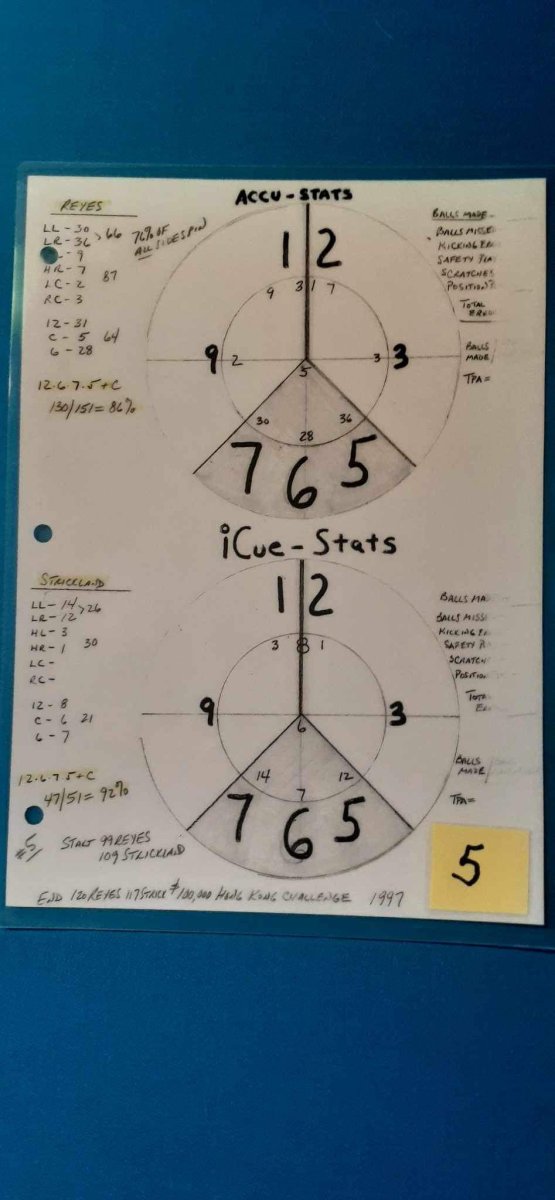 ACCU-STATS
REYES
LL - 30
LR - 36 > 66
76% OF
ALL SIDESPIN
- 9
HR - 7
87
LC - 2
RC - 3
12 - 31
C - 5 64
6 - 28
12.6.7.5 + C
130/151 = 86%
BALLS MADE -
BALLS MISSE
KICKING ER
SAFETY
SCRATCHES
POSITION
TOTAL
ERRO
BALLS
MADE
TPA =
1 2
9 31 7
9 2 3 3
5
30 36
28
7 6 5
iCue-Stats
STRICKLAND
LL - 14
LR - 12 > 26
HL - 3
HR - 1 30
LC -
RC -
12 - 8
C - 6 21
6 - 7
12.6.7.5 + C
47/51 = 92%
BALLS MA
BALLS MISS
KICKING
SAFETY
SCRATCH
POSITIO
TOTA
ER
BALLS
MADE
TPA =
1 2
3 8 1
9 3
6
14 12
7
7 6 5
#5/
START 99 REYES
109 STRICKLAND
END 120 REYES 117 STRICK $100,000 HONG KONG CHALLENGE 1997
5